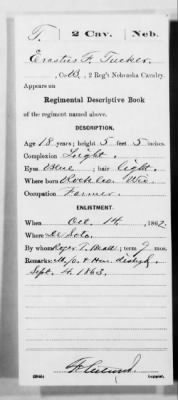 T. | 2 Cav. | Neb.
Erastus F. Tucker,
Co. B, 2 Reg't Nebraska Cavalry.
Appears on
Regimental Descriptive Book
of the regiment named above.
DESCRIPTION.
Age 18 years; height 5 feet 5 inches.
Complexion Light.
Eyes Blue; hair light.
Where born
Occupation Farmer.
ENLISTMENT.
When Oct. 14, 1862.
Where De Soto.
By whom T. Beall; term 9 mos.
Remarks: M. O. & Hon. disch'd
Sept. 4, 1863.
Copyist.